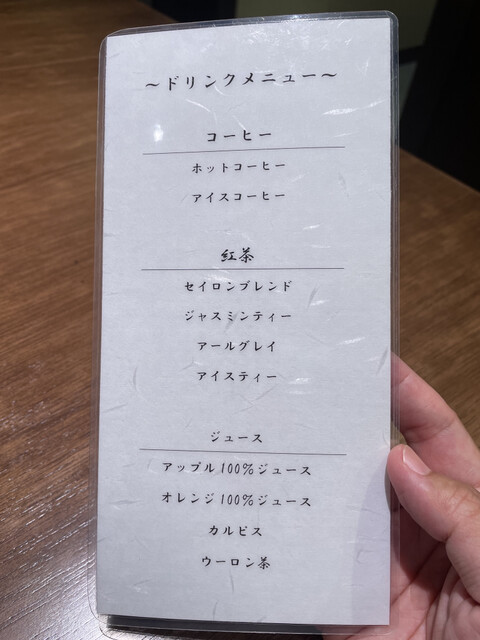 ～ドリンクメニュー～
コーヒー
ホットコーヒー
アイスコーヒー
紅茶
セイロンブレンド
ジャスミンティー
アールグレイ
アイスティー
ジュース
アップル100%ジュース
オレンジ100%ジュース
カルピス
ウーロン茶